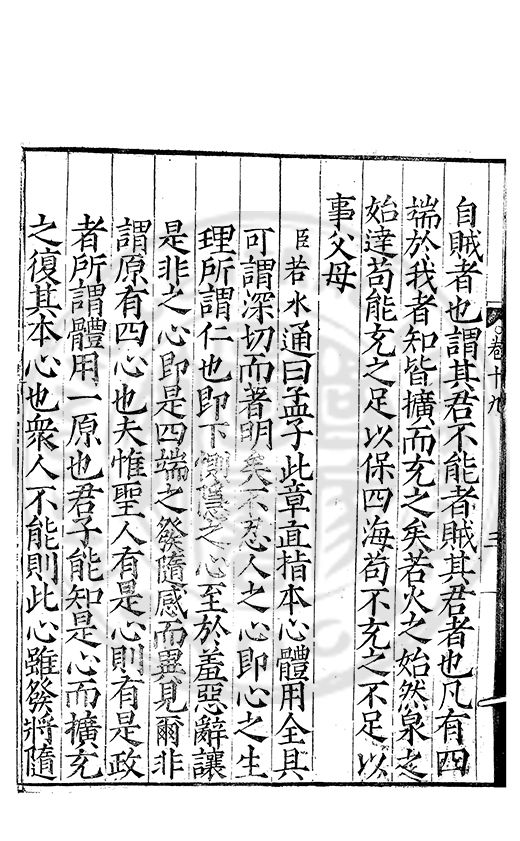 卷十九
三
自賊者也謂其君不能者賊其君者也凡有四
端於我者知皆擴而充之矣若火之始然泉之
始達苟能充之足以保四海苟不充之不足以
事父母
臣若水通曰孟子此章直指本心體用全具
可謂深切而著明矣不忍人之心即心之生
理所謂仁也即下惻隱之心至於羞惡辭讓
是非之心即是四端之發隨感而異見爾非
謂原有四心也夫惟聖人有是心則有是政
者所謂體用一原也君子能知是心而擴充
之復其本心也衆人不能則此心雖發將隨